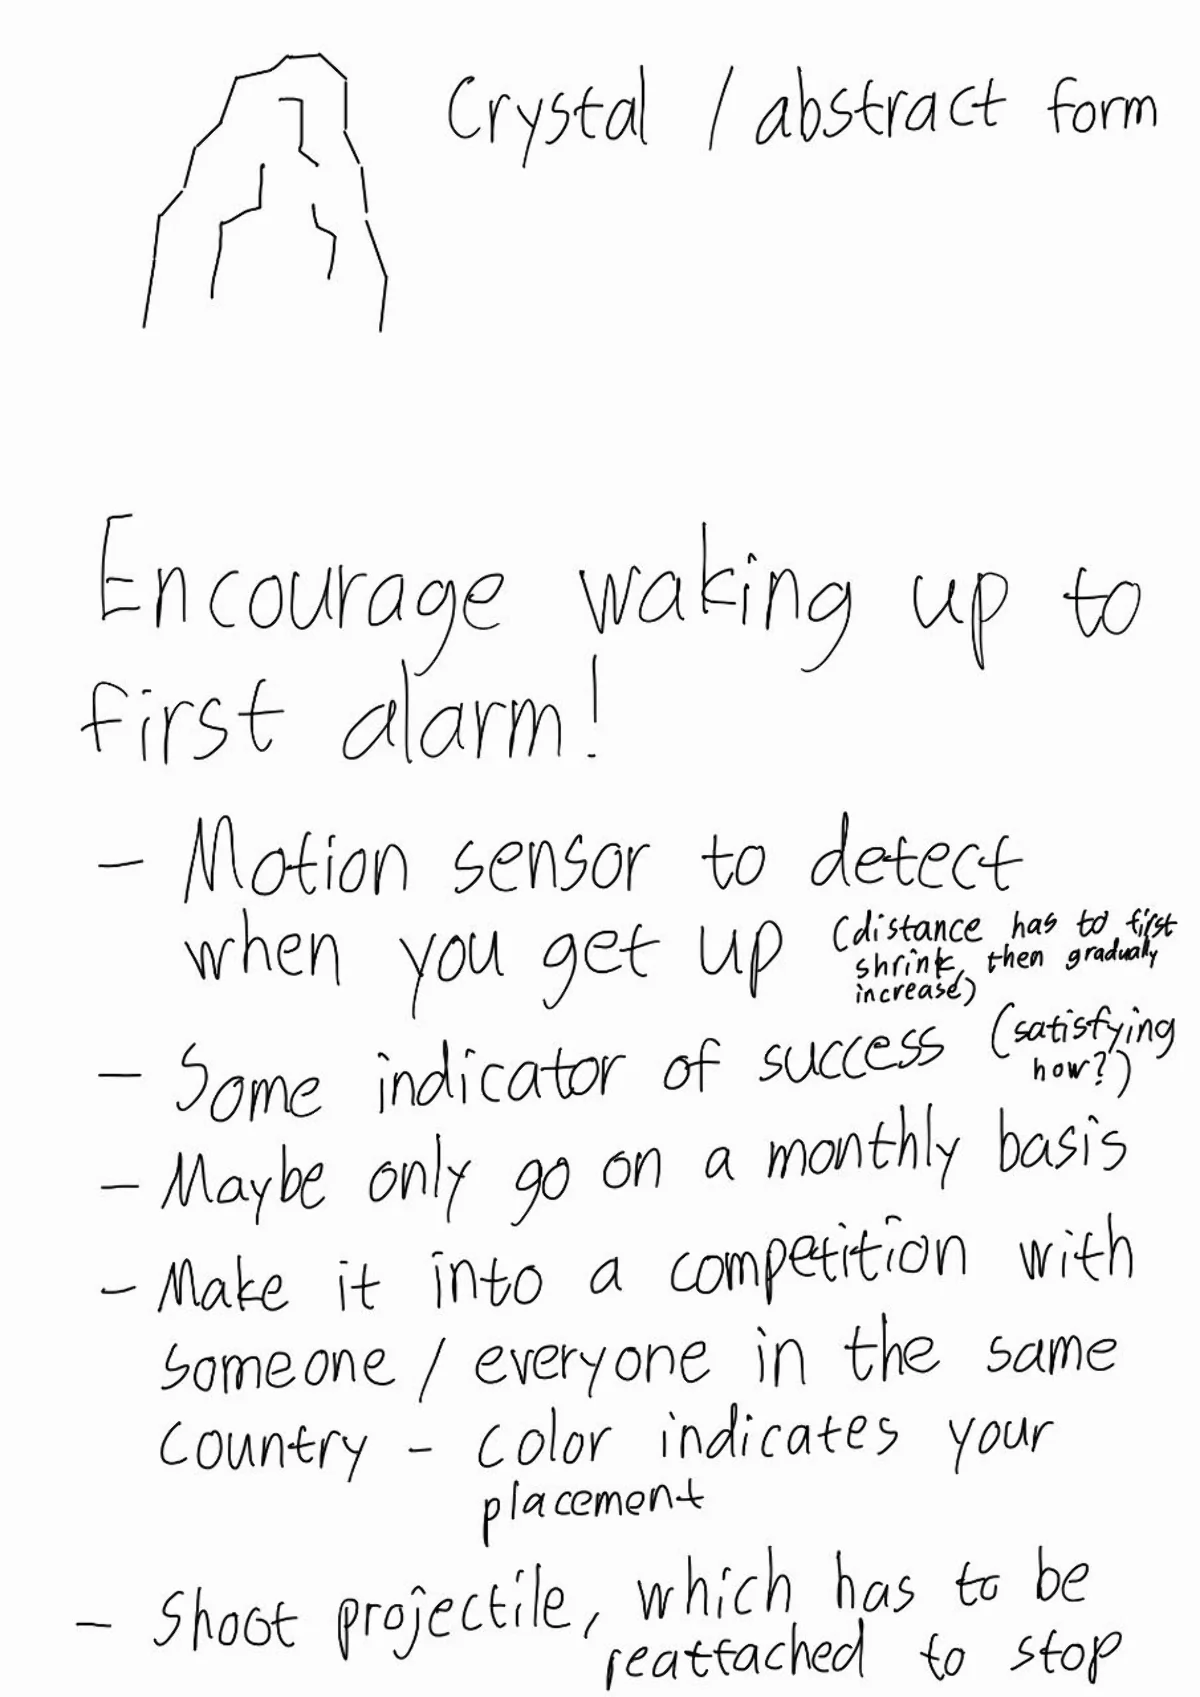 Crystal / abstract form
Encourage waking up to
first alarm!
- Motion sensor to detect
when you get up (distance has to first
shrink, then gradually
increase)
- Some indicator of success (satisfying
how?)
- Maybe only go on a monthly basis
- Make it into a competition with
someone / everyone in the same
country - color indicates your
placement
- Shoot projectile, which has to be
reattached to stop